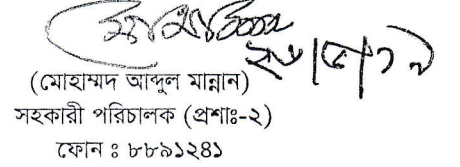 (মোহাম্মদ আব্দুল মান্নান)
সহকারী পরিচালক (প্রশাঃ-২)
ফোন ঃ ৮৮৯১২৪১